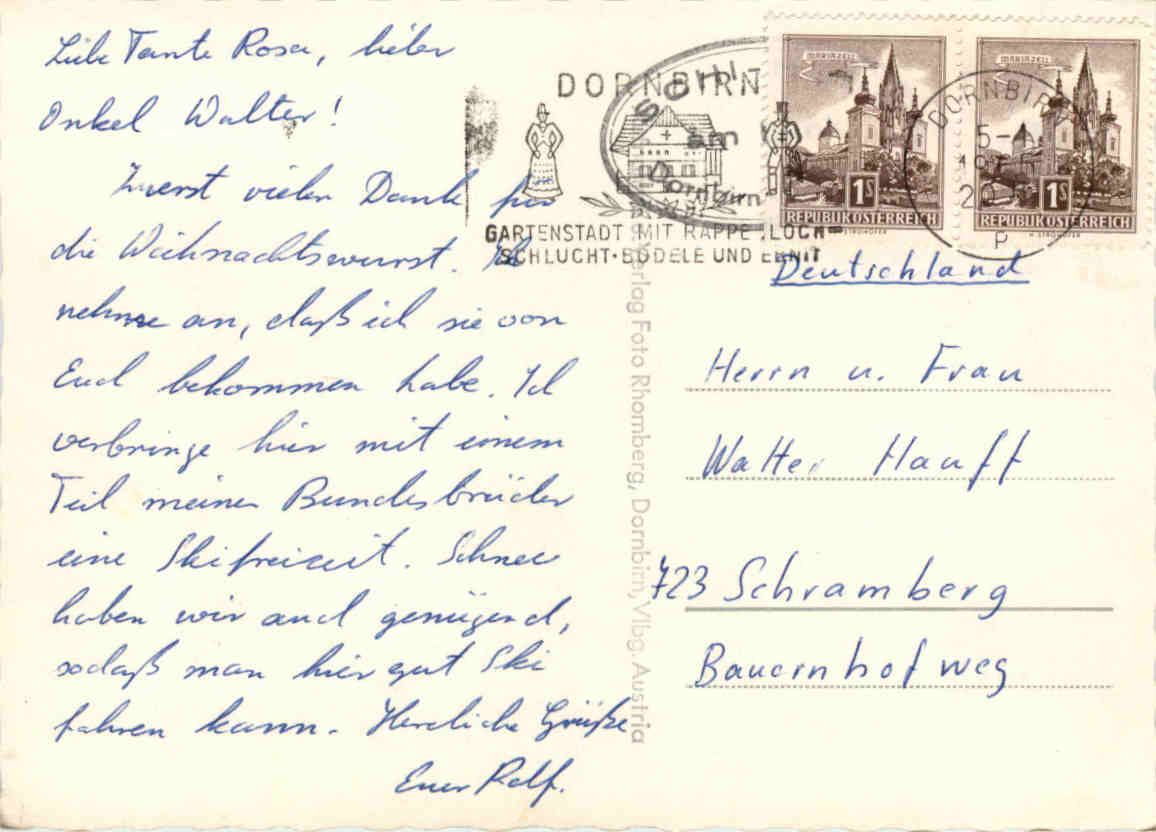 Liebe Tante Rosa, lieber
Onkel Walter!
Zuerst vielen Dank für
die Weihnachtswurst. Ich
nehme an, daß ich sie von
Euch bekommen habe. Ich
verbringe hier mit einem
Teil meiner Bundesbrüder
eine Skifreizeit. Schnee
haben wir auch genügend,
sodaß man hier gut Ski
fahren kann. Herzliche Grüße
Euer Rolf.
DORNBIRN
GARTENSTADT MIT RAPPE LOCH-
SCHLUCHT·BÖDELE UND
am
Dornbirn
MARIAZELL
1S
REPUBLIK ÖSTERREICH
MARIAZELL
1S
REPUBLIK ÖSTERREICH
DORNBIRN
P
Verlag Foto Rhomberg, Dornbirn, Vlbg. Austria
Deutschland
Herrn u. Frau
Walter Hauff
723 Schramberg
Bauernhofweg